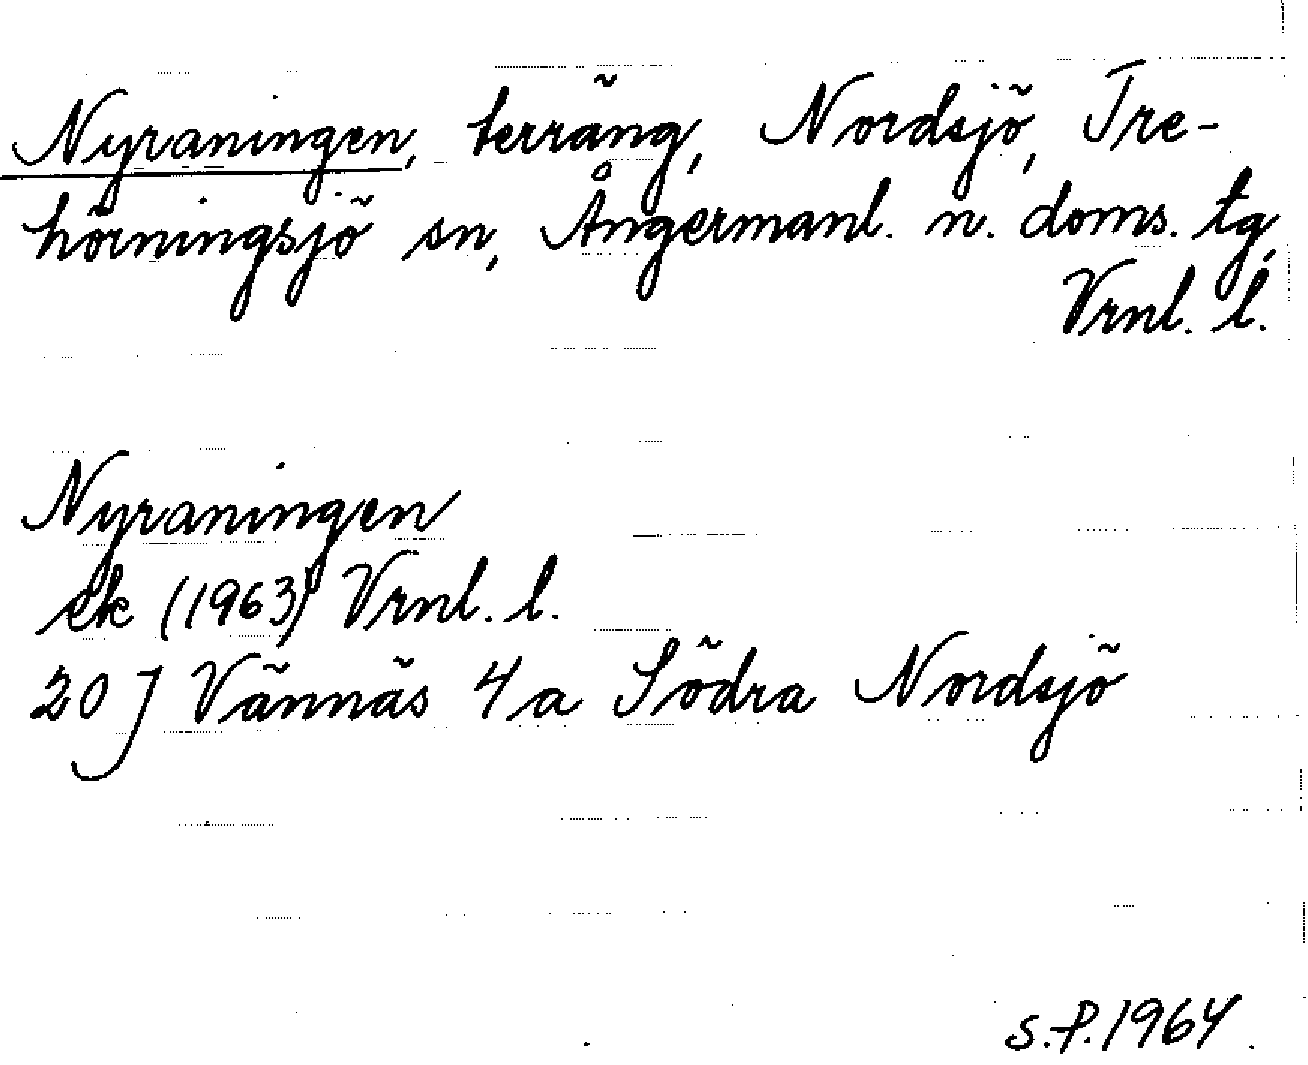 Nyraningen, terräng, Nordsjö, Tre-
hörningsjö sn, Ångermanl. n. doms. tg,
Vrnl. l.
Nyraningen
ek (1963) Vrnl. l.
20 J Vännäs 4 a Södra Nordsjö
S.P. 1964.